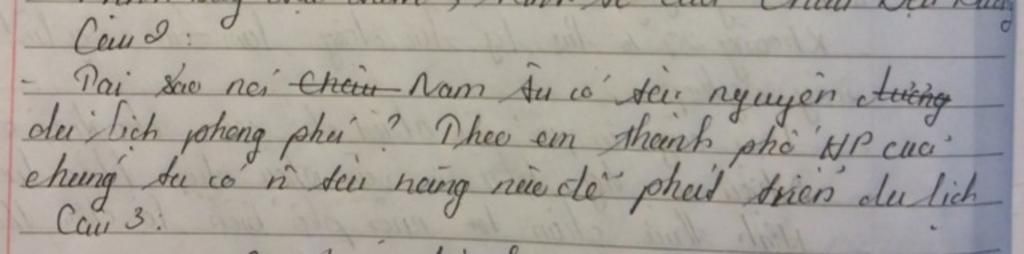 Câu 2:
- Tại sao nói Châu Nam Âu có tài nguyên đường
du lịch phong phú? Theo em thành phố HP của
chúng ta có n tài năng nào để phát triển du lịch
Câu 3: